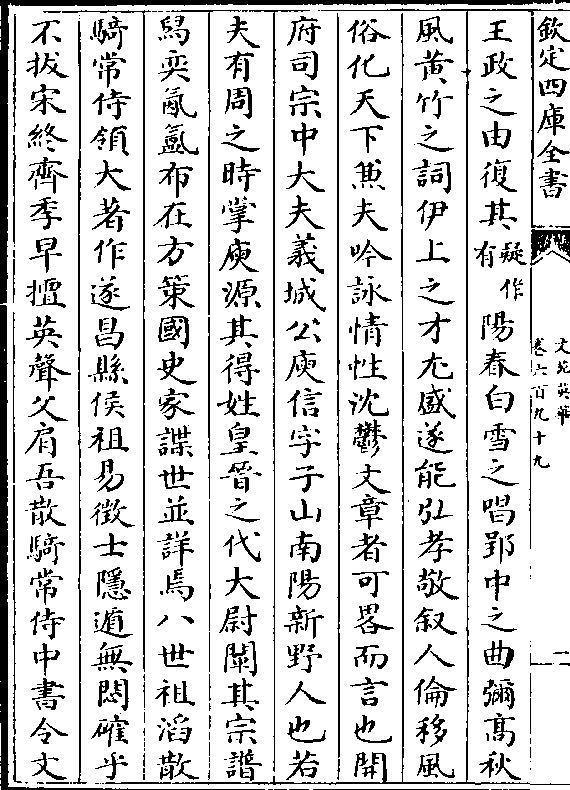 欽定四庫全書
文苑英華
卷六百九十九
二
王政之由復其疑作有陽春白雪之唱郢中之曲彌髙秋
風黄竹之詞伊上之才尤盛遂能弘孝敬叙人倫移風
俗化天下兼夫吟詠情性沈鬱文章者可畧而言也開
府司宗中大夫義城公庾信字子山南陽新野人也若
夫有周之時掌庾源其得姓皇晉之代大尉闡其宗譜
舄奕氤氲布在方策國史家諜世並詳焉八世祖滔散
騎常侍領大著作遂昌縣侯祖易徵士隱遁無悶確乎
不拔宋終齊季早擅英聲父肩吾散騎常侍中書令文